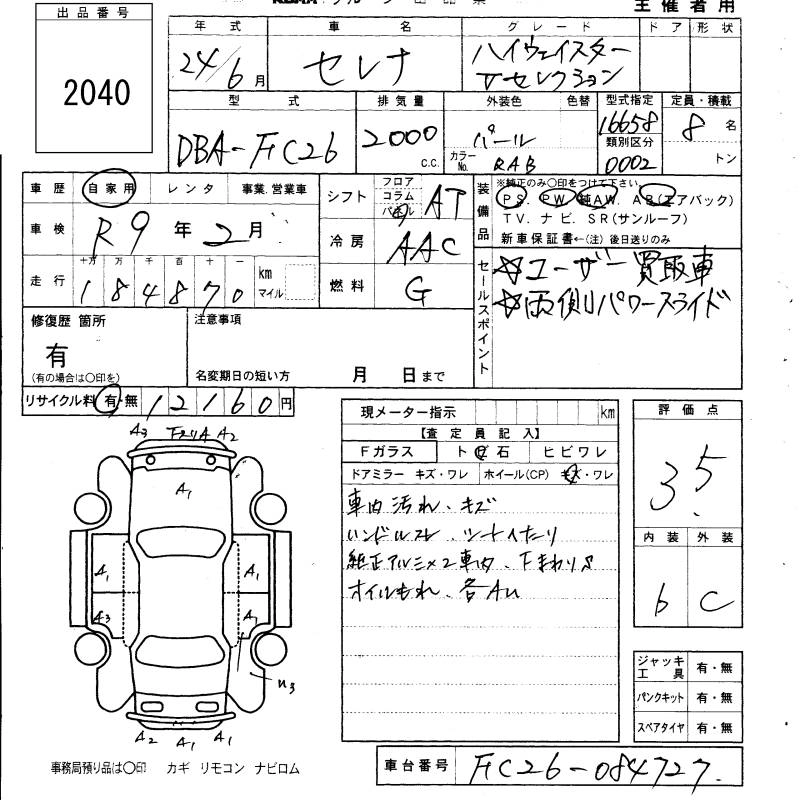 主催者用
出品番号
2040
年式 車名 グレード ドア 形状
24/6月 セレナ ハイウェイスター
Vセレクション
型式 排気量 外装色 色替 型式指定 定員・積載
DBA-FC26 2000 c.c. パール 16658 8名
類別区分
カラーNo. RAB 0002 トン
車歴 自家用 レンタ 事業.営業車
シフト フロア コラム パネル AT
装備品 ※純正のみ○印をつけて下さい
PS. PW. 純AW. AB(エアバック)
TV. ナビ. SR(サンルーフ)
新車保証書←(注) 後日送りのみ
車検 R9年2月
冷房 AAC
走行 十万 万 千 百 十 一
184870 km マイル
燃料 G
セールスポイント
☆ユーザー買取車
☆両側パワースライド
修復歴 箇所
有
(有の場合は○印を)
注意事項
名変期日の短い方 月 日まで
リサイクル料 有・無 12160円
現メーター指示 km
評価点
3.5
【査定員記入】
Fガラス ト 石 ヒビワレ
ドアミラー キズ・ワレ ホイール(CP) キズ・ワレ
車内汚れ、キズ
ハンドルスレ、シートヘたり
純正アルミ×2車内、下まわりS
オイルもれ、各AU
内装 外装
b C
A3 A2
A1
A1 A1
A3 A2
U3
A2 A1 A1
ジャッキ工具 有・無
パンクキット 有・無
スペアタイヤ 有・無
事務局預り品は○印 カギ リモコン ナビロム
車台番号 FC26-084727